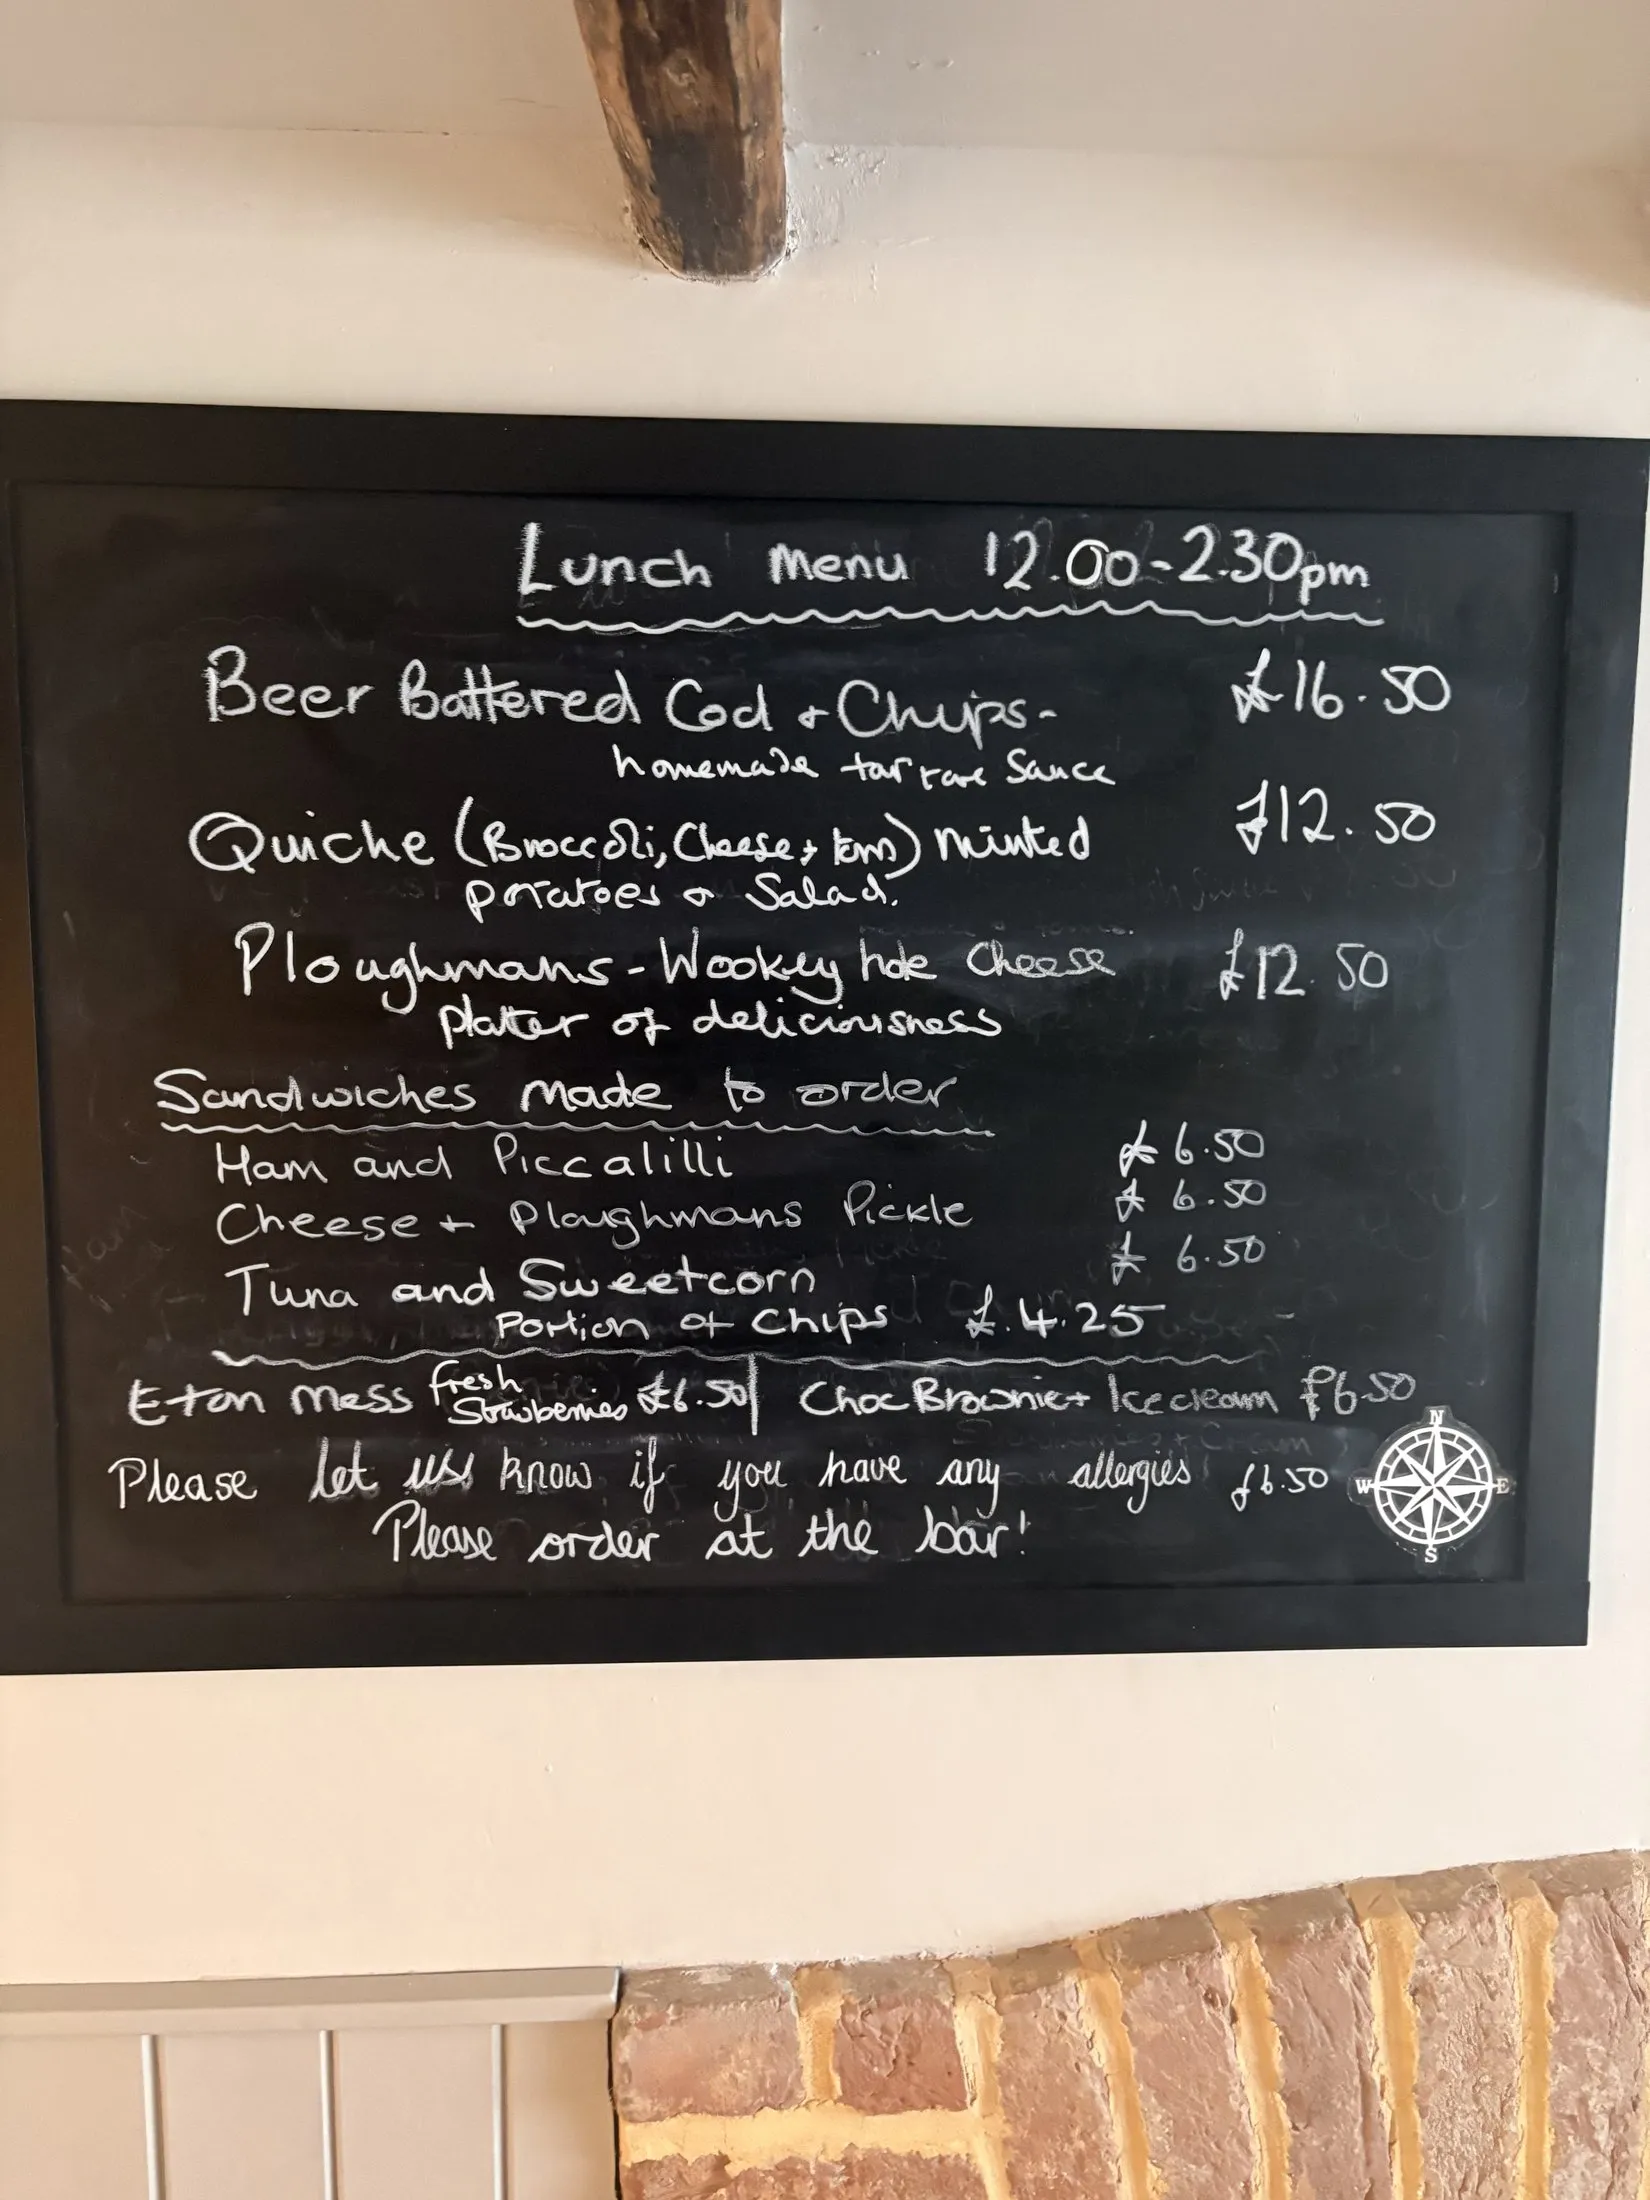 Lunch Menu 12.00-2.30pm
Beer Battered Cod + Chips- £16.50
homemade tartare Sauce
Quiche (Broccoli, Cheese + tom) Minted £12.50
potatoes + Salad.
Ploughmans - Wookey hole Cheese £12.50
platter of deliciousness
Sandwiches made to order
Ham and Piccalilli £6.50
Cheese + Ploughmans Pickle £6.50
Tuna and Sweetcorn £6.50
Portion of Chips £.4.25
Eton Mess fresh Strawberries £6.50 | Choc Brownie + Ice cream £6.50
Please let us know if you have any allergies £6.50
Please order at the bar!
N
W E
S